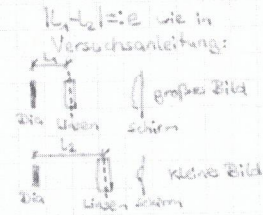 |L₁-L₂|=:e wie in
Versuchsanleitung:
L₁
großes Bild
Dia Linsen Schirm
L₂
kleines Bild
Dia Linsen Schirm